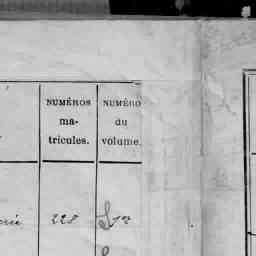 NUMÉROS
ma-
tricules.
NUMÉRO
du
volume.
228